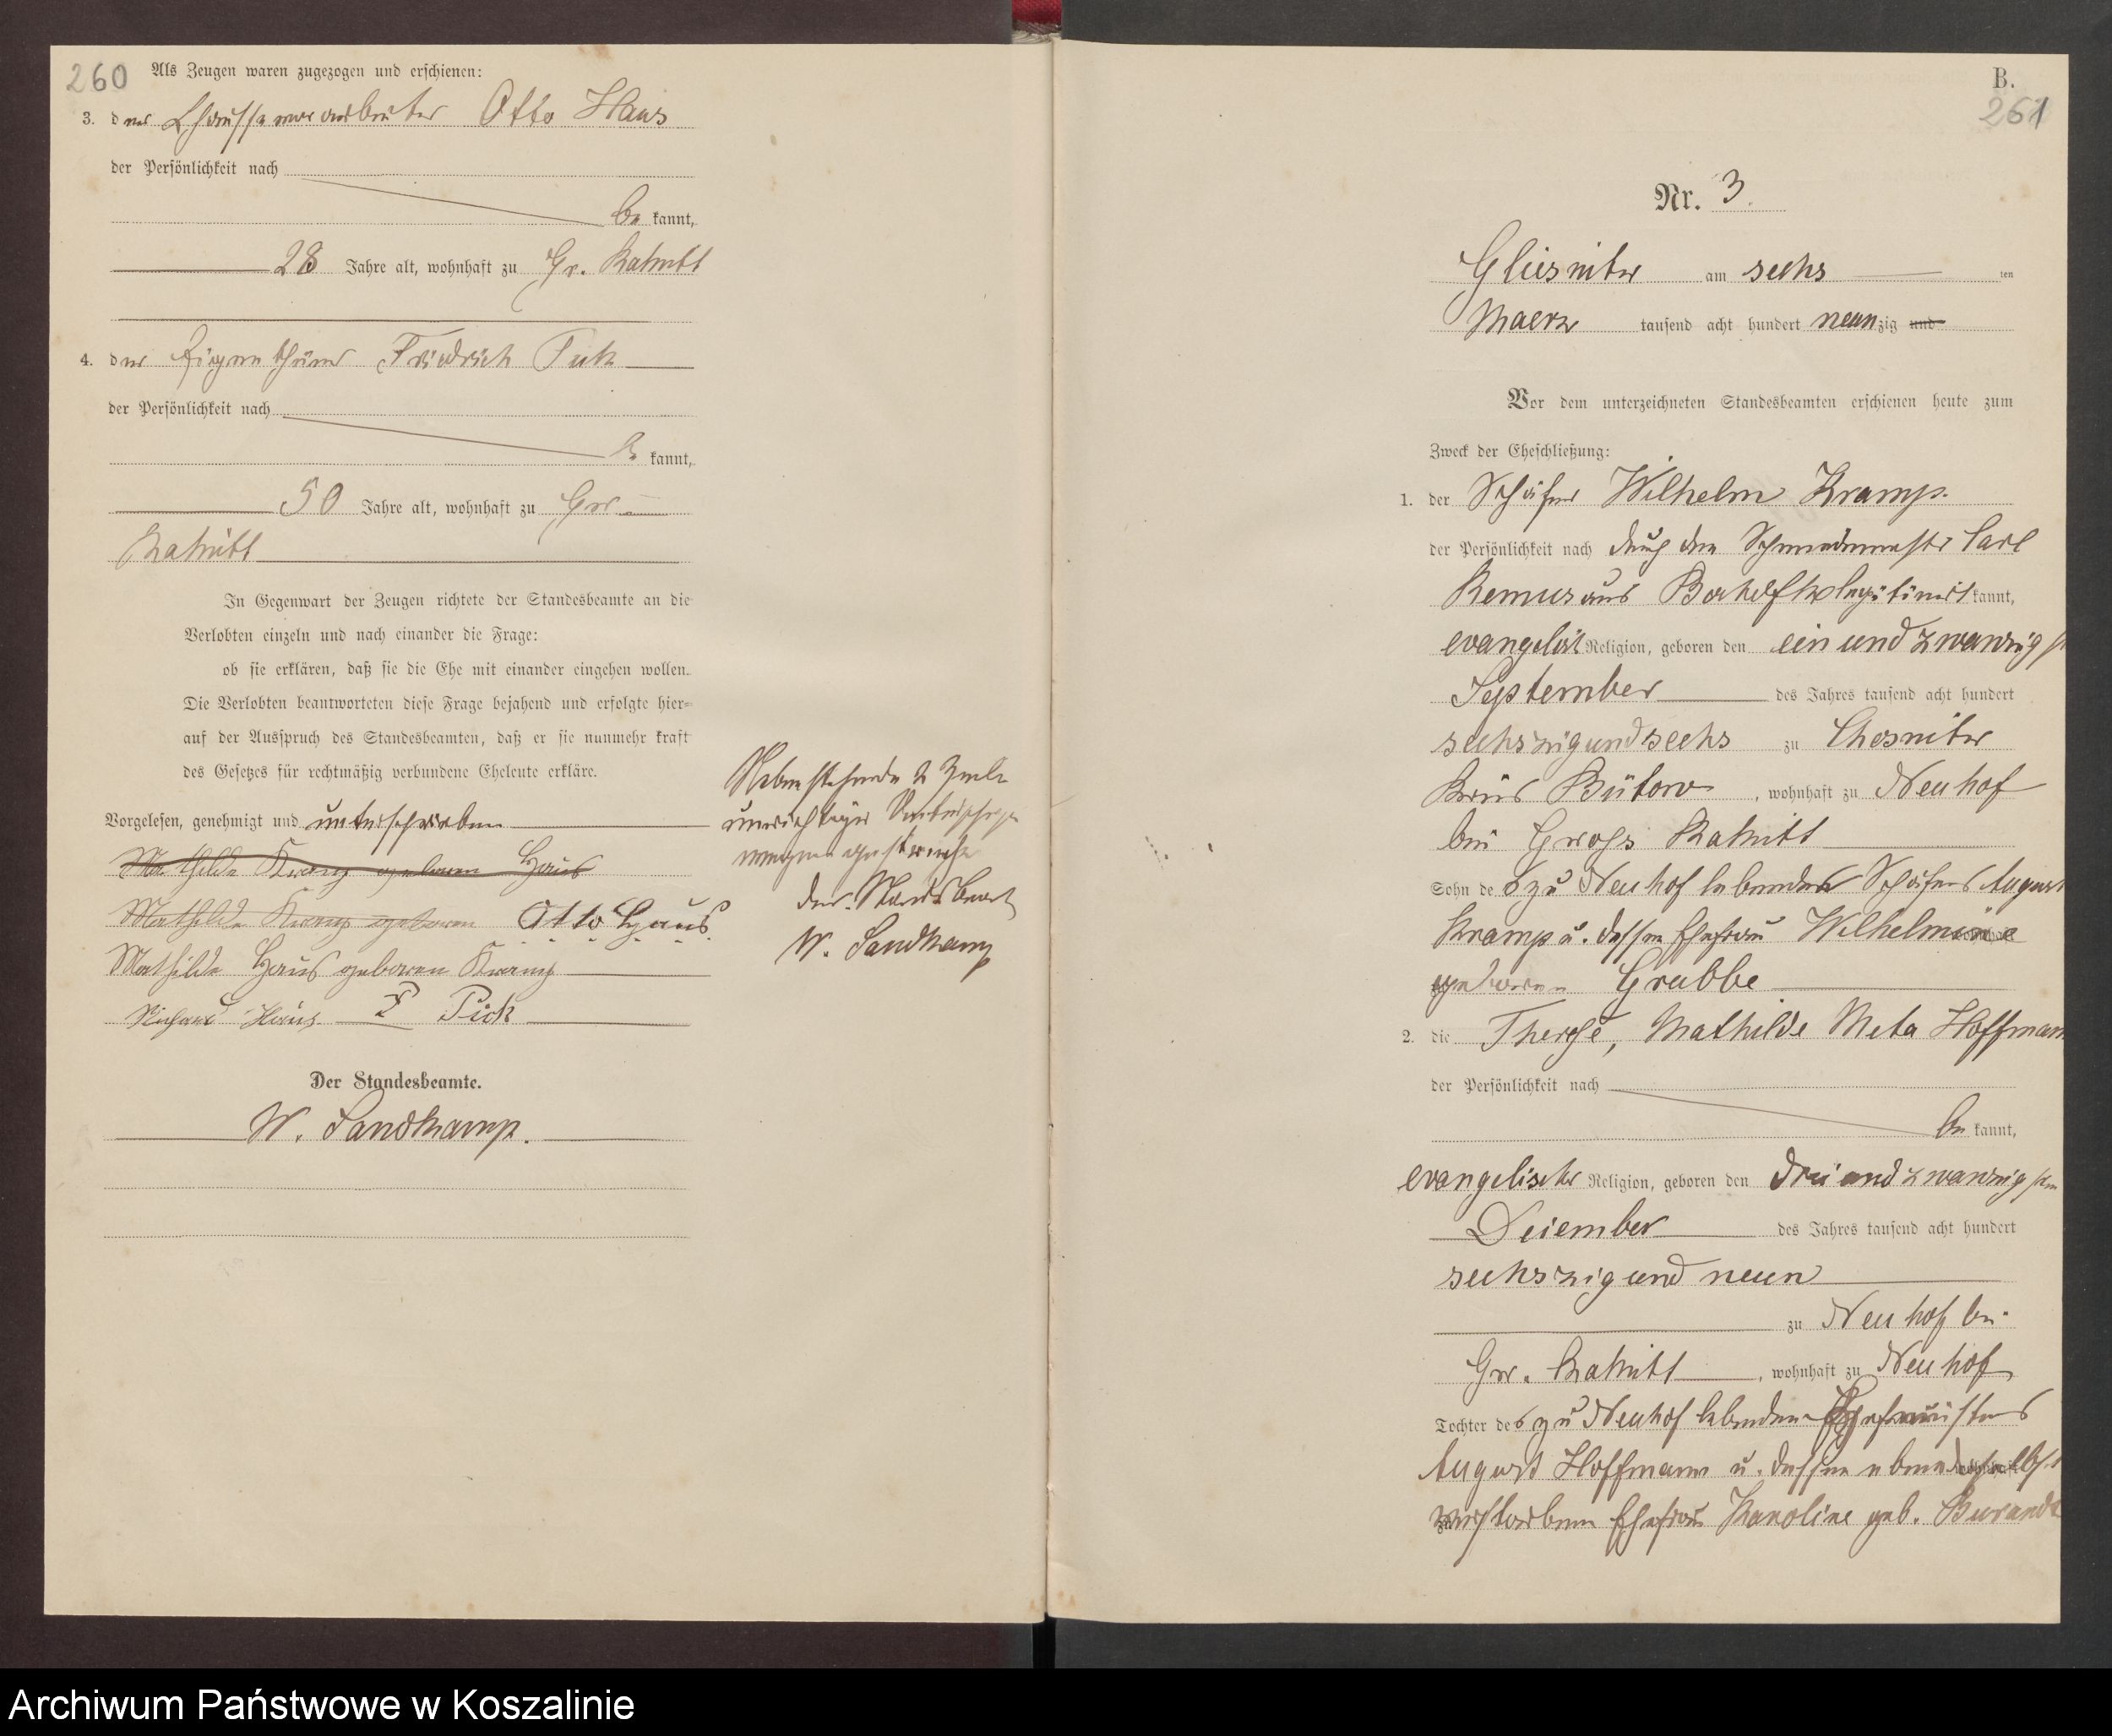 260
Als Zeugen waren zugezogen und erschienen:
3. der Chausseearbeiter Otto Haus
der Persönlichkeit nach
be kannt,
28 Jahre alt, wohnhaft zu Gr. Rakitt
4. der Eigenthümer Friedrich Pick
der Persönlichkeit nach
be kannt,
50 Jahre alt, wohnhaft zu Gr.
Rakitt
In Gegenwart der Zeugen richtete der Standesbeamte an die
Verlobten einzeln und nach einander die Frage:
ob sie erklären, daß sie die Ehe mit einander eingehen wollen.
Die Verlobten beantworteten diese Frage bejahend und erfolgte hier=
auf der Ausspruch des Standesbeamten, daß er sie nunmehr kraft
des Gesetzes für rechtmäßig verbundene Eheleute erkläre.
Vorgelesen, genehmigt und unterschrieben
Mathilde Kramp geboren Haus
Mathilde Kramp geboren Otto Haus
Mathilde Haus geboren Kramp
Richard Haus F Pick
Der Standesbeamte.
W. Sandkamp.
Nebenstehende 2 Zeile
unrichtiger Unterschrift
wegen gestrichen
Der Standsbeamt
W. Sandkamp
B.
261
Nr. 3.
Gliesnitz am sechs ten
Maerz tausend acht hundert neunzig und
Vor dem unterzeichneten Standesbeamten erschienen heute zum
Zweck der Eheschließung:
1. der Schäfer Wilhelm Kramp.
der Persönlichkeit nach durch den Schmiedemeister Carl
Remus aus legitimirt kannt,
evangelisch Religion, geboren den ein und zwanzigst
September des Jahres tausend acht hundert
sechszig und sechs zu
Kreis Bütow, wohnhaft zu Neuhof
bei Gross Rakitt
Sohn des zu Neuhof lebenden Schäfers August
Kramp u. dessen Ehefrau Wilhelmine
geboren Grabbe
2. die Therese, Mathilde Meta Hoffmann
der Persönlichkeit nach
be kannt,
evangelischer Religion, geboren den drei und zwanzigsten
Dezember des Jahres tausend acht hundert
sechszig und neun
zu Neuhof bei
Gr. Rakitt, wohnhaft zu Neuhof
Tochter des zu Neuhof lebenden
August Hoffmann u. dessen ebendaselbst
verstorbenen Ehefrau Karoline geb. Burandt
Archiwum Państwowe w Koszalinie